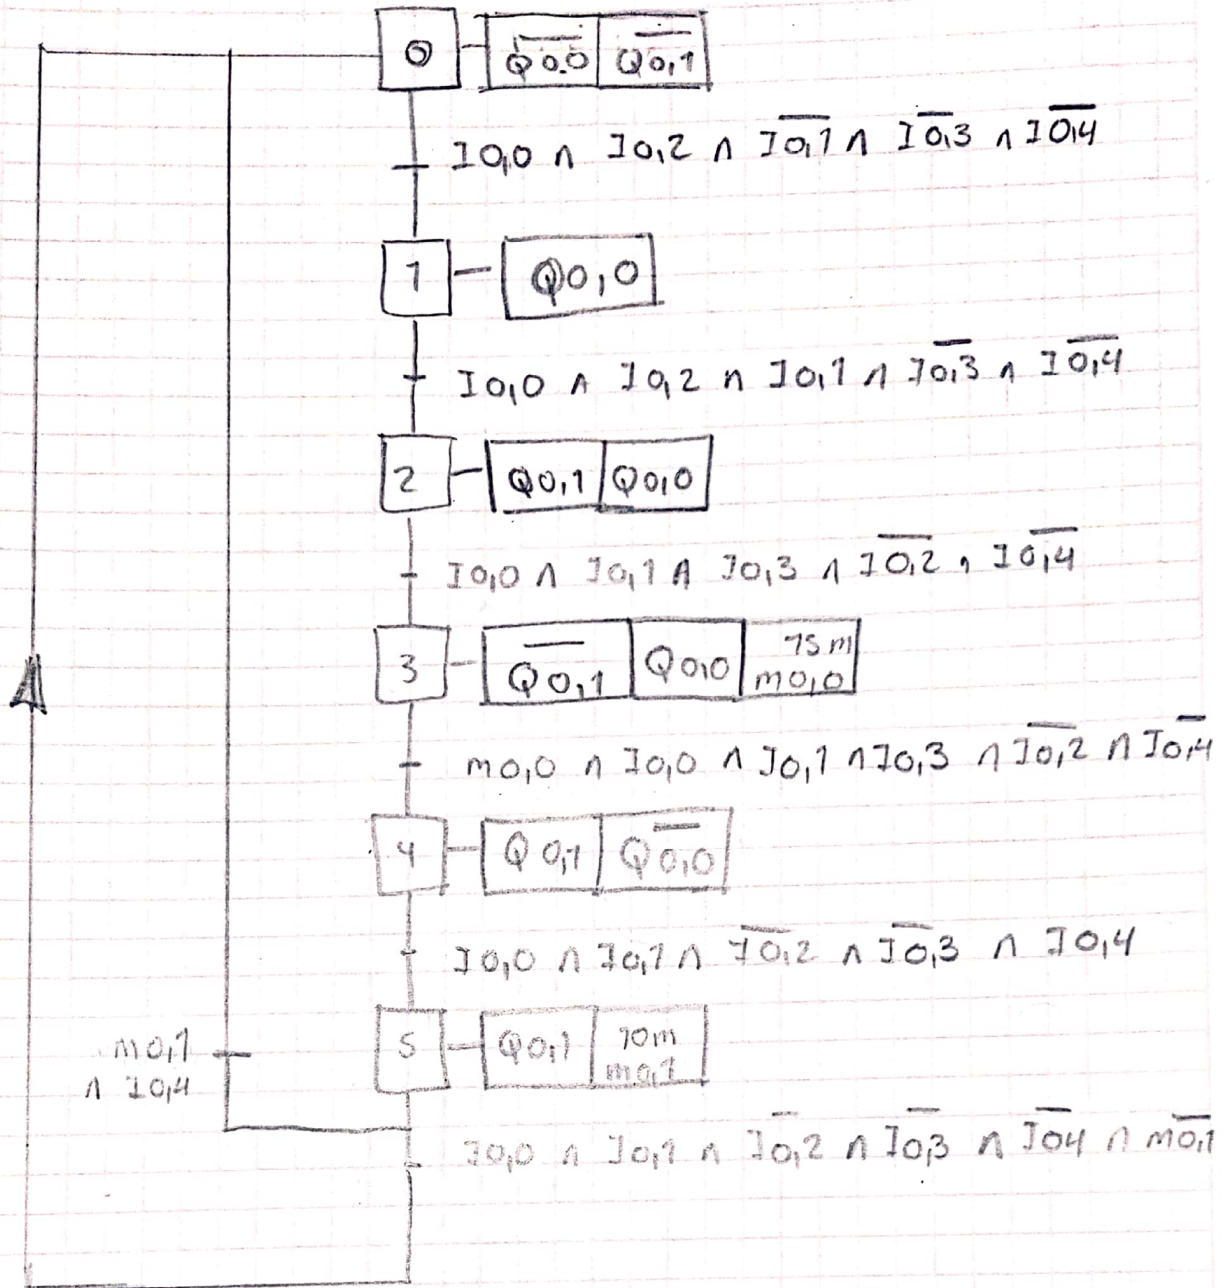 0 Q̅0̅.̅0̅ Q̅0̅,̅1̅
I0,0 ∧ I0,2 ∧ I̅0̅,̅1̅ ∧ I̅0̅,̅3̅ ∧ I̅0̅,̅4̅
1 Q0,0
I0,0 ∧ I0,2 ∧ I0,1 ∧ I̅0̅,̅3̅ ∧ I̅0̅,̅4̅
2 Q0,1 Q0,0
I0,0 ∧ I0,1 ∧ I0,3 ∧ I̅0̅,̅2̅ , I̅0̅,̅4̅
3 Q̅0̅,̅1̅ Q0,0 15m
m0,0
m0,0 ∧ I0,0 ∧ I0,1 ∧ I0,3 ∧ I̅0̅,̅2̅ ∧ I̅0̅,̅4̅
4 Q0,1 Q̅0̅,̅0̅
I0,0 ∧ I0,1 ∧ I̅0̅,̅2̅ ∧ I̅0̅,̅3̅ ∧ I0,4
5 Q0,1 10m
m0,1
m0,1
∧ I0,4
I0,0 ∧ I0,1 ∧ I̅0̅,̅2̅ ∧ I̅0̅,̅3̅ ∧ I̅0̅4̅ ∧ m̅0̅,̅1̅